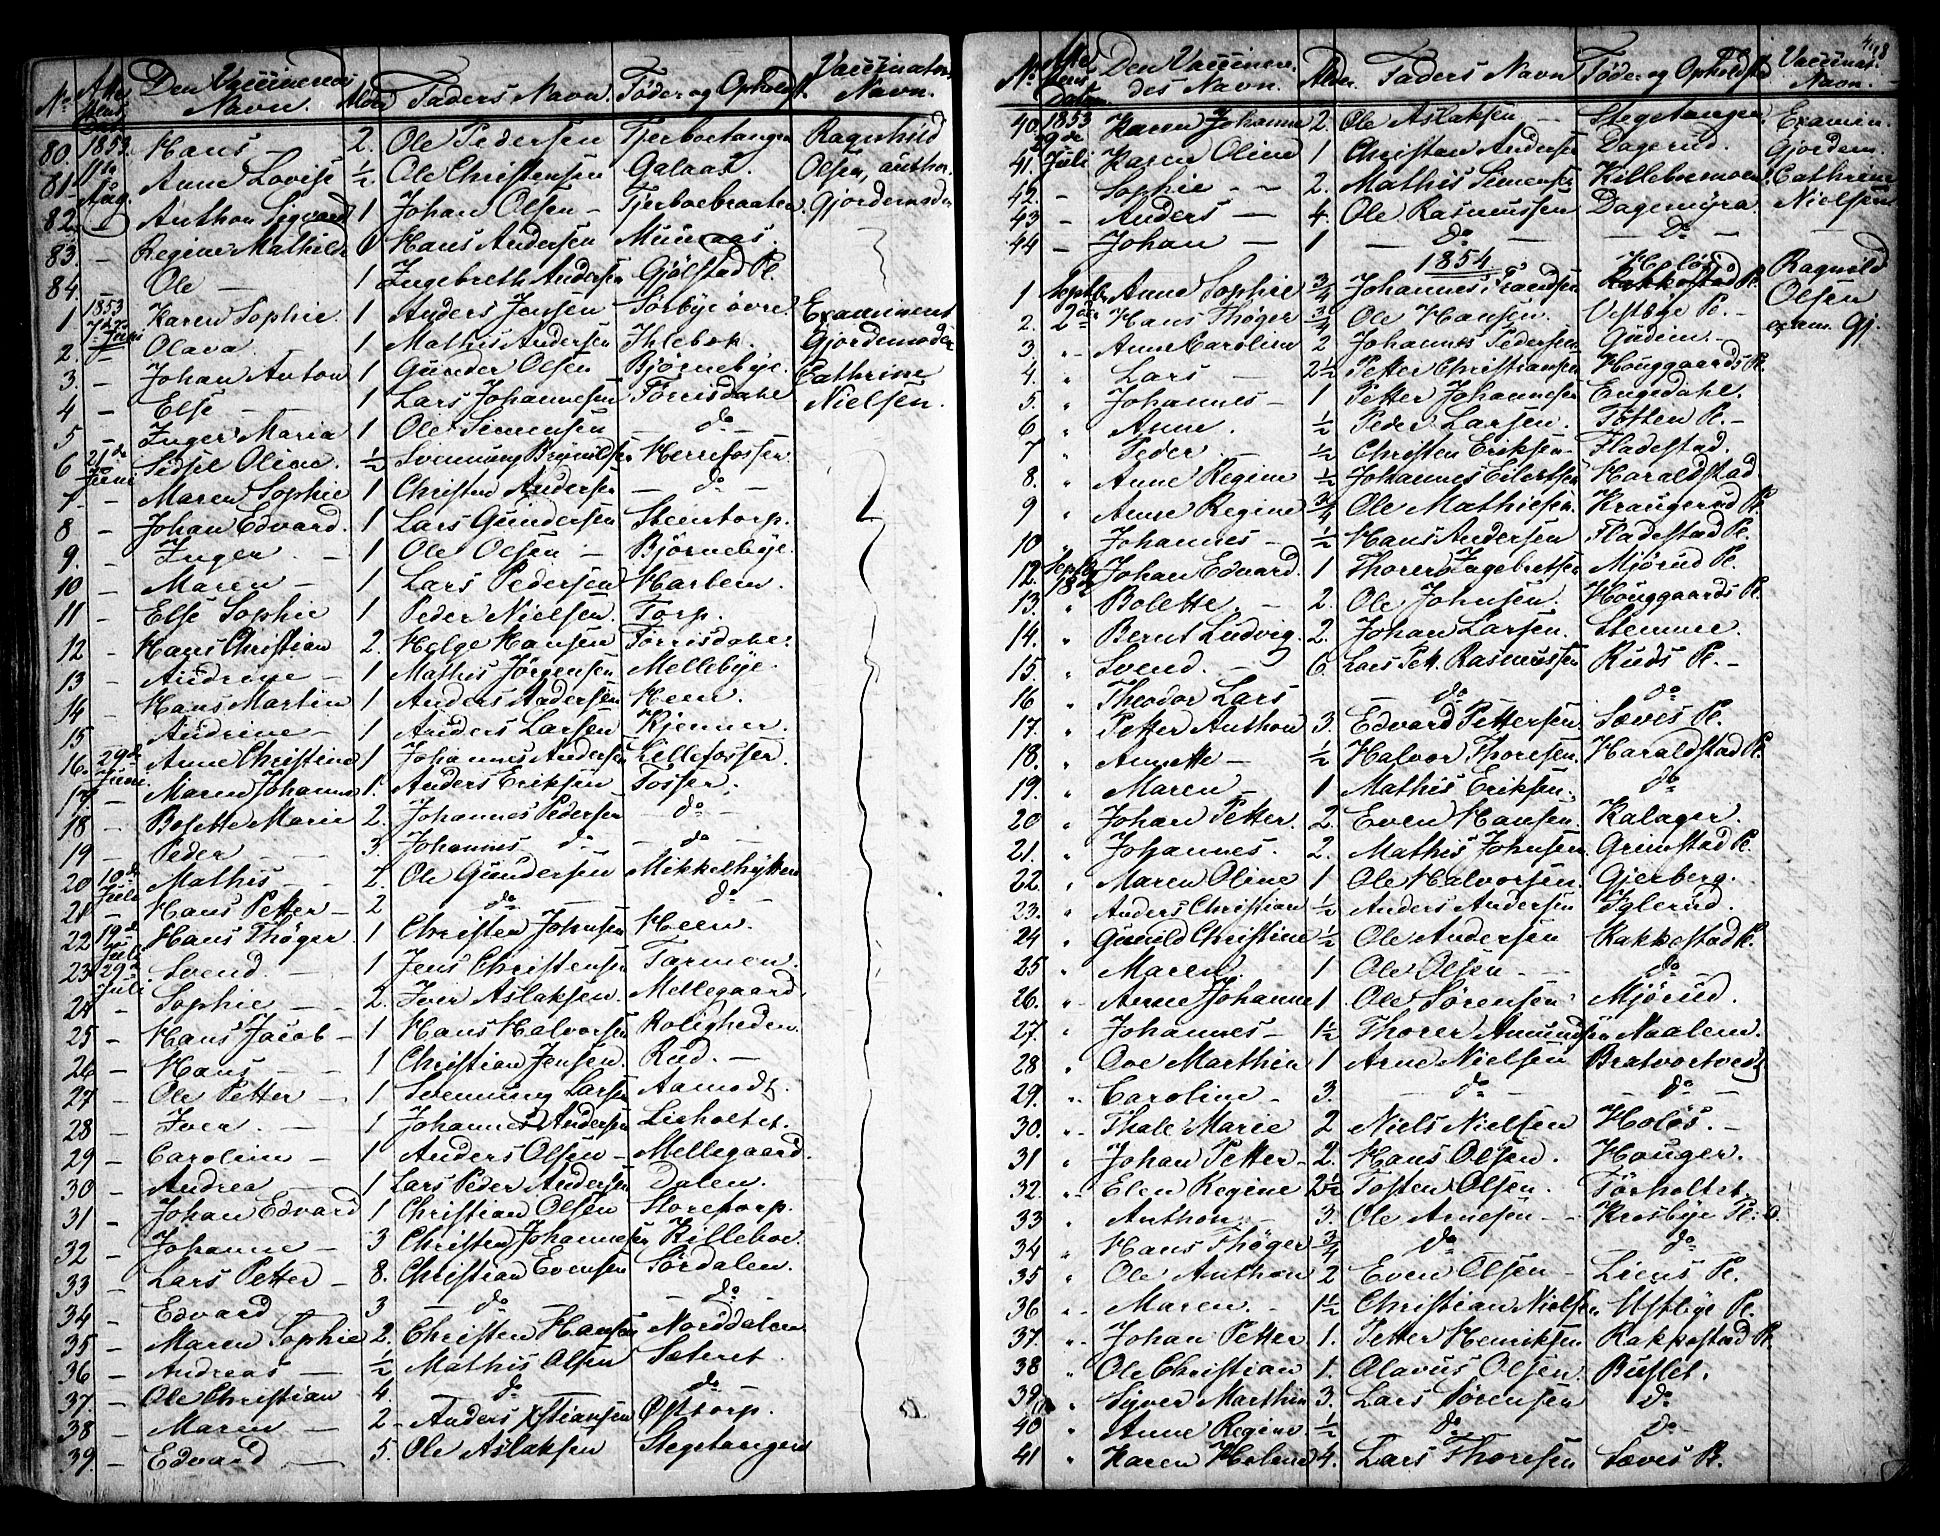 No. Attestens Datum Den Vaccineredes Navn. Alder Faders Navn. Føde- og Opholdst. Vaccinateurs Navn.
80. 1853. Hans — 2. Ole Pedersen Tjerboetangen Ragnhild
81. 11te Anne Lovise ½ Ole Christensen Galaas. Olsen, author.
82. Aug. Anthon Sigvard 1 Johan Olsen — Tjerboebraaten. Gjordemoder
83. — Regine Mathilde Hans Andersen
84. — Ole — 1 Ingebreth Andersen Gjølstad Pl.
1 1853 Karen Sophie. 1 Anders Jensen Sørbye øvre. Examineret
2. Juni Olava — 1 Mathis Andersen Ihlebek. Gjordemoder
3. — Johan Anton 1 Gunder Olsen Bjørnebye. Cathrine
4 — Else — 1 Lars Johannesen Torrisdahl Nielsen.
5 — Inger Maria 1 Ole Simensen do
6 21de Juni Sidsel Oline. ½ Svennung Brynildsen Herrefosser.
7 — Maren Sophie 1 Christen Andersen — do —
8 — Johan Edvard. 1 Lars Gundersen Steentorp.
9. — Inger. — 1 Ole Olsen — Bjørnebye.
10 — Maren — 1 Lars Pedersen Harbem.
11 — Else Sophie 1 Peder Nielsen. Torp.
12 — Hans Christian 2. Helge Hansen Torrisdahl.
13 — Andrine — 1 Mathis Jörgensen Mellebye.
14 — Hans Martin 1 Anders Andersen Heen.
15 — Andrine — 1 Anders Larsen Kjenner.
16. 29de Juni Anne Christine 1 Johannes Andersen Lillefosser.
17 — Maren Johanne 1. Anders Eriksen Fosser.
18 — Bolette Marie 2. Johannes Pedersen — do —
19 — Peder — 3. Johannes do — do —
20 10de Juli Mathis — 2. Ole Gundersen Mikkelhytten
21 — Hans Petter — 2 do — do
22 19de Juli Hans Thøger. 1 Christen Johnsen Heen.
23 29de Juli Svend. — 1 Jens Christensen Tarmen.
24 — Sophie — 2. Iver Aslaksen. Mellegaard.
25 — Hans Jacob — 1 Hans Halvorsen Roligheden.
26 — Hans — 1 Christian Jensen. Rud. —
27 — Ole Petter — 1 Svennung Larsen Aamodt.
28 — Iver. — 1 Johannes Andersen Lisholtet.
29 — Caroline — 1 Anders Olsen — Mellegaard.
30 — Andrea — 1 Lars Peder Andersen Dalen.
31 — Johan Edvard 1 Christian Olsen Storetorp.
32 — Johanne — 3 Christen Johannesen Killeboe.
33 — Lars Petter — 8. Christian Evensen Sørdalen.
34 — Edvard — 3 — do — do
35 — Maren Sophie 2. Christen Hansen Norddalen
36 — Andreas — ½ Mathis Olsen Sæteret.
37. — Ole Christian 4. do do
38 — Maren — 2 — Anders Xstiansen Østtorp.
39. — Edvard — 5. Ole Aslaksen Stegetangen
No. Attestens Datum Den Vaccineredes Navn. Alder. Faders Navn Føde- og Opholdst. Vaccinat. Navn.
40. 1853 Karen Johanne 2. Ole Aslaksen — Stegetangen Examin.
41. Juli Karen Oline 1 Christen Andersen Dagerud. Gjordem.
42. — Sophie — 2. Mathis Simensen Killeboemoen. Cathrine
43 — Anders — 4. Ole Rasmussen Dagemyra. Nielsen
44 — Johan — 1 — do — do —
1854
1 Septbr. Anne Sophie ¾ Johannes Holøs Ragnild
2. 2den Hans Thøger ¾ Ole Hansen. Vestbye Pl. — Olsen
3. — Anne Caroline 2 Johannes Pedersen Gudim. — exam. Gj.
4. " Lars — 2½ Petter Christiansen Houggaards Pl.
5. " Johannes — 1 Petter Johannesen Engedahl.
6 " Anne. ½ Peder Larsen. Tosten Pl. —
7 " Peder — ½ Christen Eriksen — Fladestad.
8. " Anne Regine ½ Johannes Eilertsen Haraldstad
9 " Anne Regine ¾ Ole Mathiesen. Krangerud Pl.
10 " Johannes — ½ Hans Andersen Fladestad Pl.
12. Septbr 18de Johan Edvard. 1 Thorer Ingebretsen Mjørud Pl.
13. " Bolette. — 2. Ole Johnsen. Houggaards Pl.
14. " Bernt Ludvig. 2. Johan Larsen. Stemme.
15. " Svend. — 6. Lars Pet. Rasmussen Ruds Pl. —
16 " Theodor Lars do do
17. " Petter Anthon 3. Edvard Pettersen Sæves Pl.
18. " Annette — ½ Halvor Thoresen. Haraldstad Pl.
19. " Maren — 1 Mathis Eriksen. do
20 " Johan Petter. 2. Even Hansen. Kalager.
21. " Johannes. 2. Mathis Johnsen. Grimstad Pl.
22. " Maren Oline 1 Ole Halvorsen. Gjerberg.
23. " Anders Christian ½ Anders Andersen Iglerud.
24 " Gunild Christine ½ Ole Andersen Rakkestad Pl.
25 " Maren. 1 Ole Olsen — do
26. " Anne Johanne 1. Ole Sørensen Mjørud.
27. " Johannes — 1½ Thorer Amundsen Naalem.
28 " Ove Marthin 1 Arne Nielsen Bratvortved
29. " Caroline — 3. — do — do —
30. " Thale Marie 2 Niels Nielsen Holøs. —
31 " Johan Petter — 2. Hans Olsen. Hauger.
32. " Elen Regine 2½ Tosten Olsen. Tørholtet.
33 " Anthon. — 3. Ole Arnesen — Krosbye Pl.
34 " Hans Thøger ¾ do do
35 " Ole Anthon 2 Even Olsen — Liens Pl.
36 " Maren. — 1½ Christian Nielsen Vestbye Pl.
37. " Johan Petter 1. Petter Henriksen Rakkestad Pl.
38 " Ole Christian 1. Olavus Olsen. Buslet.
39. " Syver Marthin 3. Lars Sørensen do
40 " Anne Regine. ½ do do
41 " Karen Helene 4. Lars Thoresen Sæves Pl.